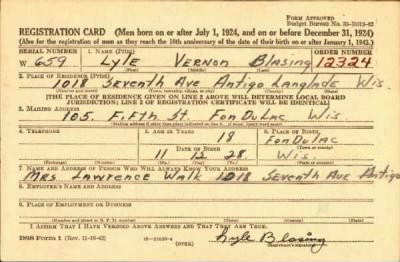 FORM APPROVED
REGISTRATION CARD (Men born on or after July 1, 1924, and on or before December 31, 1924)
(Also for the registration of men as they reach the 18th anniversary of the date of their birth on or after January 1, 1943.)
SERIAL NUMBER 1. NAME (Print) ORDER NUMBER
W 659 Lyle Vernon Blasing 12324
(First) (Middle) (Last)
2. PLACE OF RESIDENCE (Print)
1018 Seventh Ave Antigo Langlade Wis.
(Number and street) (State)
[THE PLACE OF RESIDENCE GIVEN ON LINE 2 ABOVE WILL DETERMINE LOCAL BOARD
JURISDICTION; LINE 2 OF REGISTRATION CERTIFICATE WILL BE IDENTICAL]
3. MAILING ADDRESS
105. Fifth St. Fon Du Lac Wis
4. TELEPHONE 5. AGE IN YEARS 6. PLACE OF BIRTH
18 Fon Du Lac
DATE OF BIRTH (Town or county)
11 28. Wis.
(Exchange) (Number) (Mo.) (Day) (Yr.) (State or country)
7. NAME AND ADDRESS OF PERSON WHO WILL ALWAYS KNOW YOUR ADDRESS
Mrs Lawrence Walk 1018 Seventh Ave Antigo
8. EMPLOYER'S NAME AND ADDRESS
9. PLACE OF EMPLOYMENT OR BUSINESS
(Number and street or R. F. D. number) (Town) (County) (State)
I AFFIRM THAT I HAVE VERIFIED ABOVE ANSWERS AND THAT THEY ARE TRUE.
DSS Form 1 (Rev. 11-16-42) (OVER) Lyle Blasing